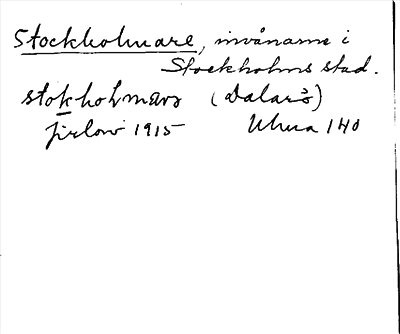 Stockholmare, invånarne i
Stockholms stad.
stokholmars (Dalarö)
Jirlow 1915 Uhma 140